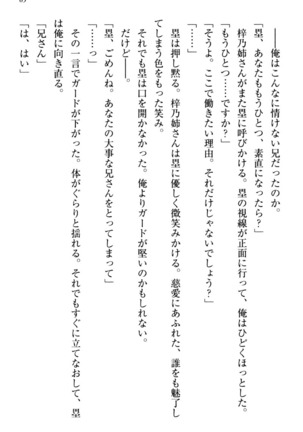 ――俺はこんなに情けない兄だったのか。
「塁、あなたももうひとつ、素直になったら?」
梓乃姉さんがまた塁に呼びかける。塁の視線が正面に行って、俺はひどくほっとした。
「もうひとつ……ですか?」
「そうよ。ここで働きたい理由。それだけじゃないでしょう?」
「……」
塁は押し黙る。梓乃姉さんは塁に優しく微笑みかける。慈愛にあふれた、誰をも魅了し
てしまう色をもった笑み。
それでも塁は口を開かなかった。俺よりガードが堅いのかもしれない。
だけど――。
「塁、ごめんね。あなたの大事な兄さんをとってしまって」
「……っ」
その一言でガードが下がった。体がぐらりと揺れる。それでもすぐに立てなおして、塁
は俺に向き直る。
「兄さん」
「は、はい」